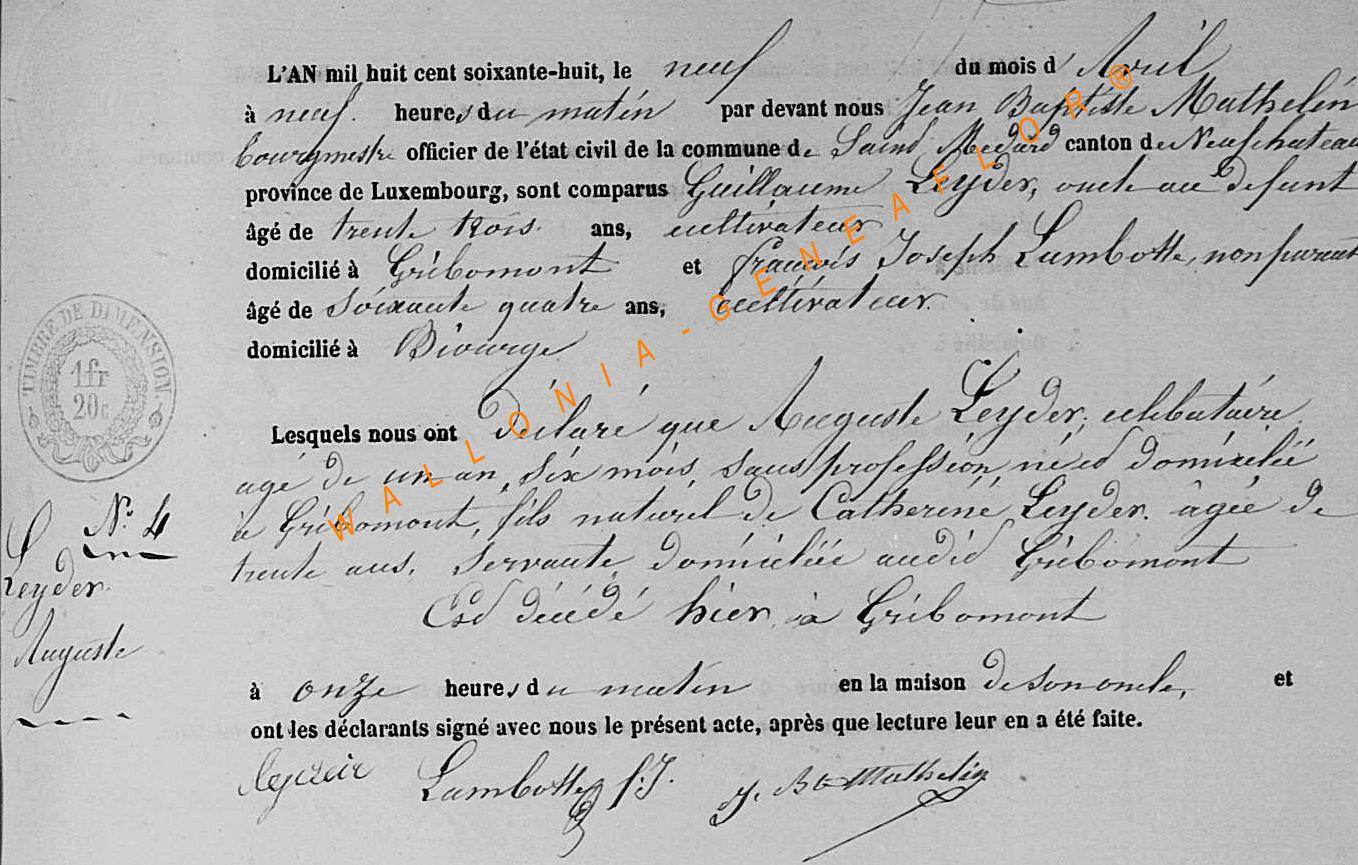 L'AN mil huit cent soixante-huit, le neuf du mois d' Avril
à neuf. heures du matin par devant nous Jean Baptiste Mathelin
bourgmestre officier de l'état civil de la commune de Saint Médard canton de Neufchateau
province de Luxembourg, sont comparus Guillaume Leyder, oncle au defunt
âgé de trente trois ans, cultivateur
domicilié à Gribomont et françois Joseph Lambotte, non parent
âgé de soixante quatre ans, cultivateur.
domicilié à Biourge
Lesquels nous ont déclaré que Auguste Leyder, celibataire
agé de un an, six mois, sans profession né et domicilié
à Gribomont, fils naturel de Catherine Leyder. âgée de
trente ans, servante, domiciliée audit Gribomont
Est décédé hier, à Gribomont
à onze heures du matin en la maison de son oncle, et
ont les déclarants signé avec nous le présent acte, après que lecture leur en a été faite.
Lambotte f. J. J. Bte Mathelin
TIMBRE DE DIMENSION
1fr
20c
N° 4
Leyder
Auguste
WALLONIA-GENEAFLOR®